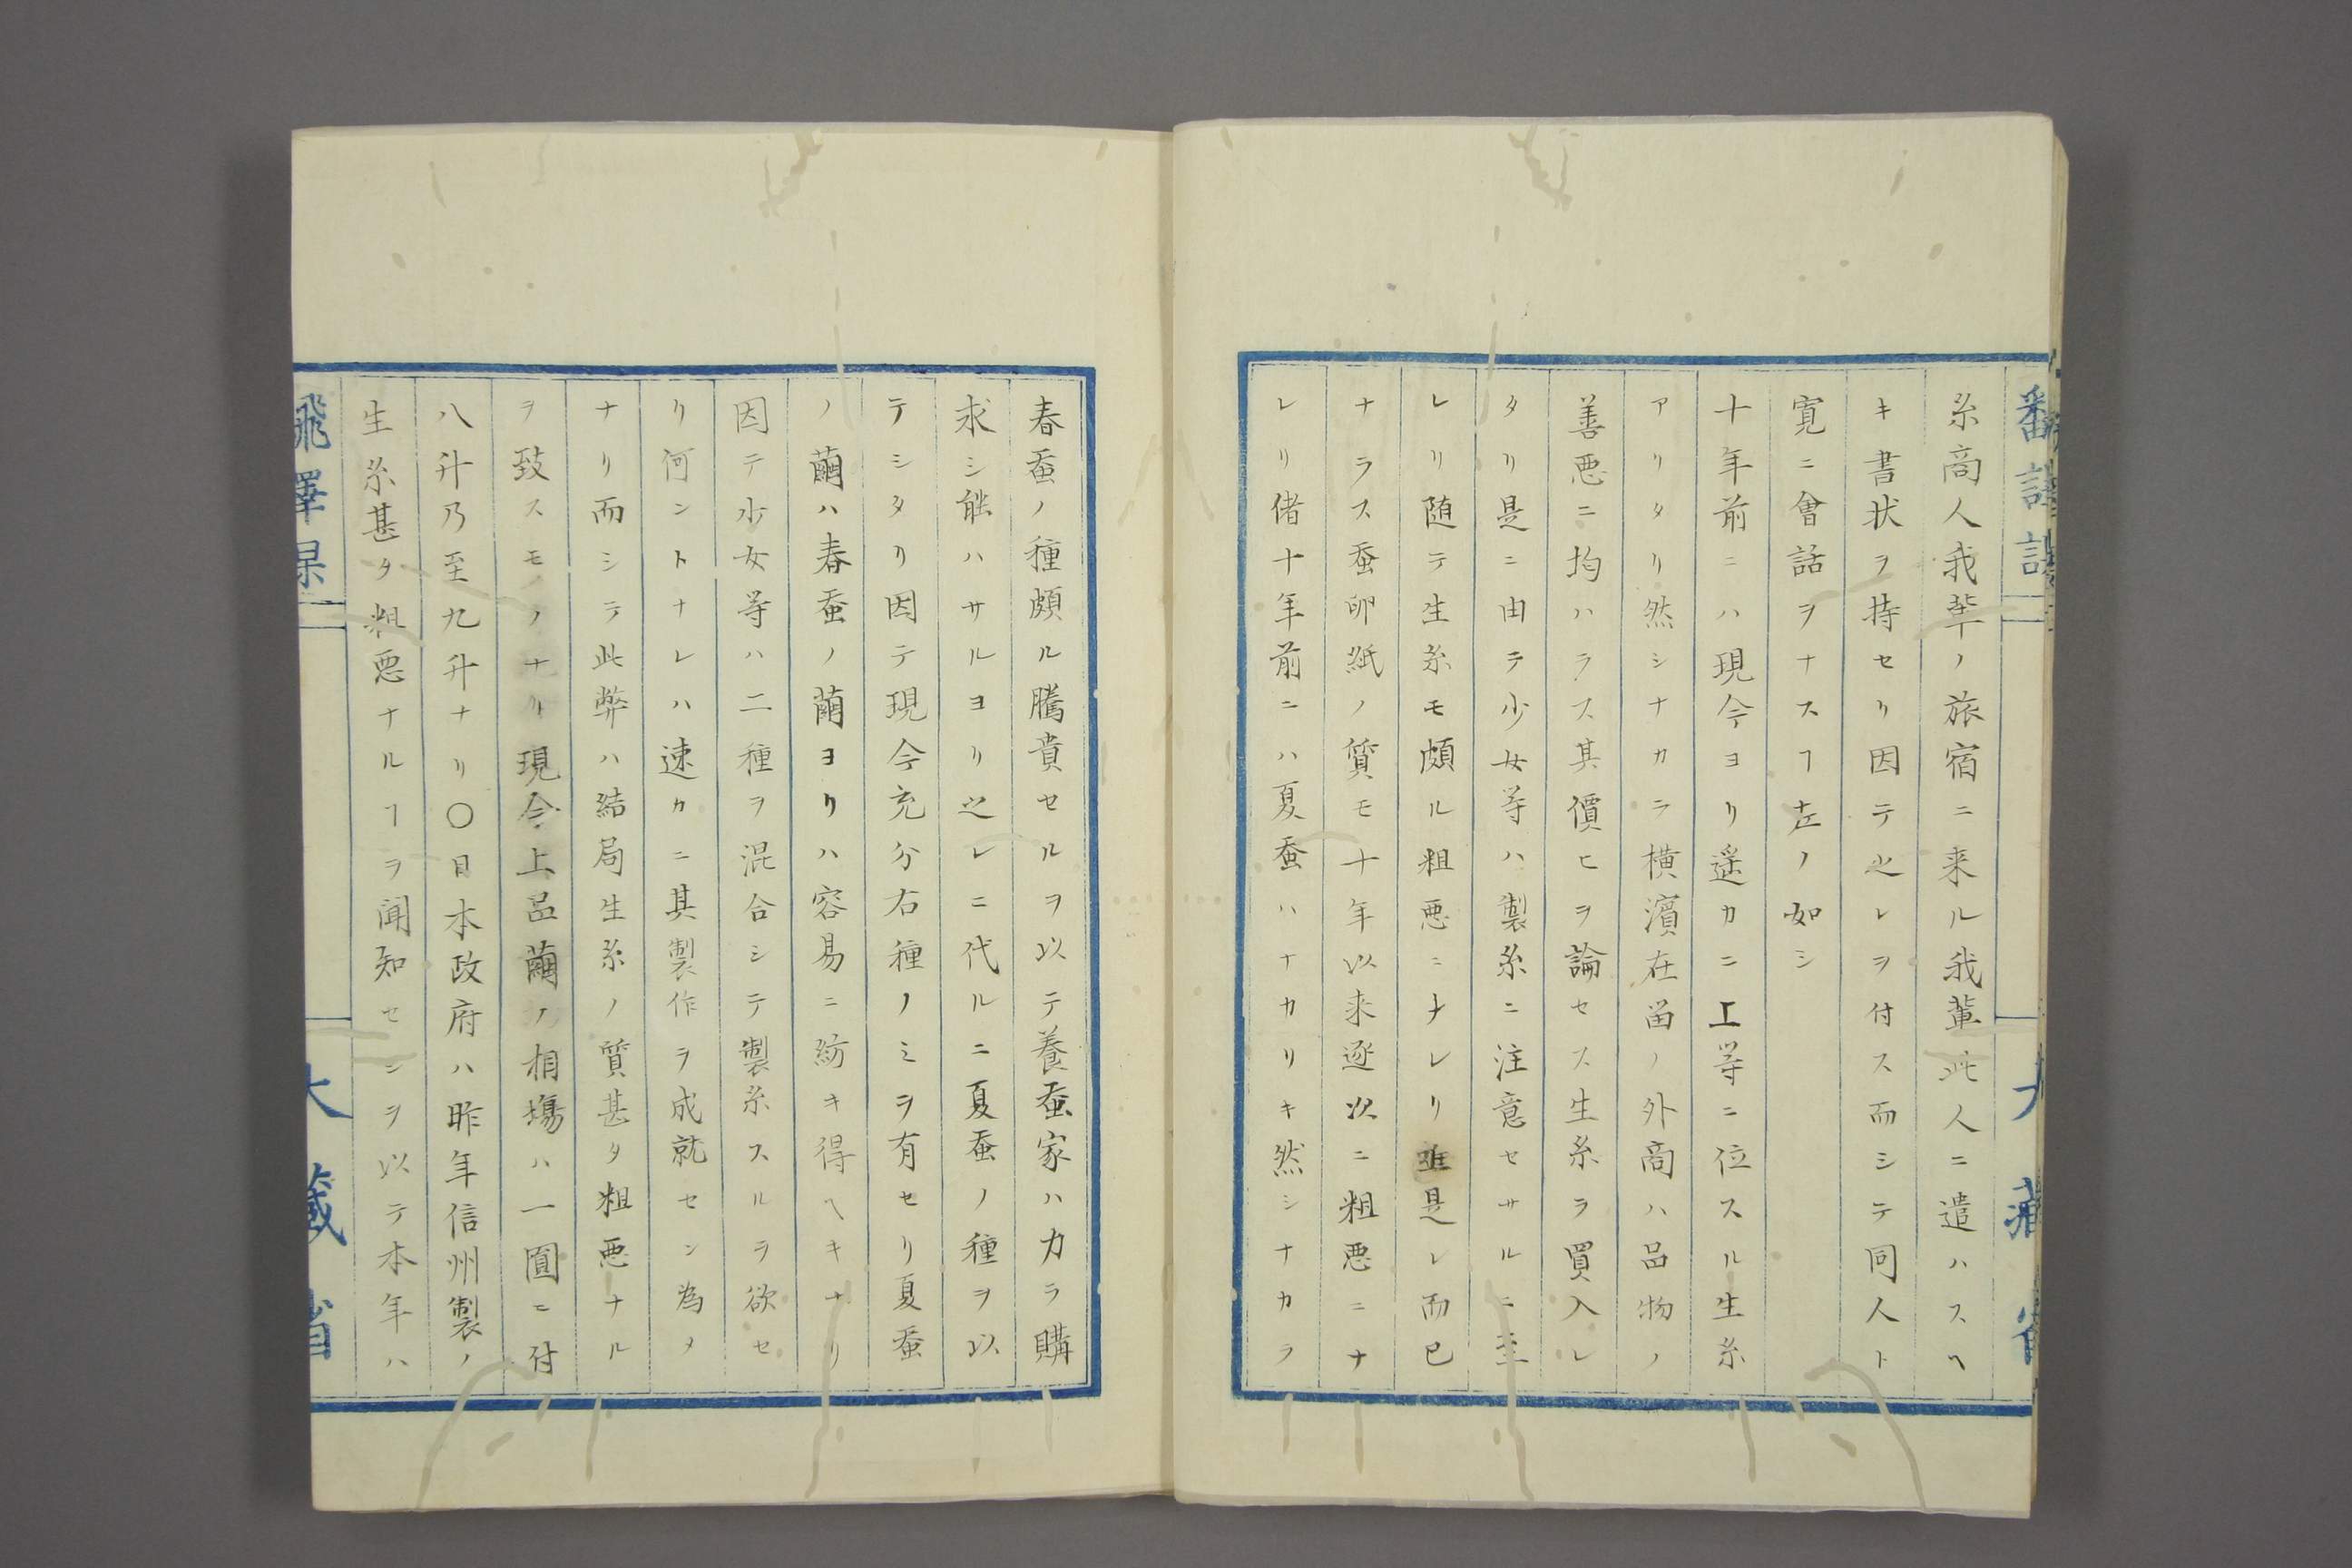 糸商人我輩ノ旅宿ニ来ル我輩此人ニ遣ハスヘ
キ書状ヲ持セリ因テ之レヲ付ス而シテ同人ト
寛ニ會話ヲナスヿ左ノ如シ
十年前ニハ現今ヨリ遥カニ上等ニ位スル生糸
アリタリ然シナカラ横濱在留ノ外商ハ品物ノ
善悪ニ均ハラス其價ヒヲ論セス生糸ヲ買入レ
タリ是ニ由テ少女等ハ製糸ニ注意セサルニ至
レリ随テ生糸モ頗ル粗悪ニナレリ啻是レ而已
ナラス蚕卵紙ノ質モ十年以来逐次ニ粗悪ニナ
レリ偖十年前ニハ夏蚕ハナカリキ然シナカラ
春蚕ノ種頗ル騰貴セルヲ以テ養蚕家ハ力ヲ購
求シ能ハサルヨリ之レニ代ルニ夏蚕ノ種ヲ以
テシタリ因テ現今充分右種ノミヲ有セリ夏蚕
ノ繭ハ春蚕ノ繭ヨリハ容易ニ紡キ得ヘキナリ
因テ少女等ハ二種ヲ混合シテ製糸スルヲ欲セ
リ何ントナレハ速カニ其製作ヲ成就セン為メ
ナリ而シテ此弊ハ結局生糸ノ質甚タ粗悪ナル
ヲ致スモノナリ現今上品繭ノ相場ハ一圓ニ付
八升乃至九升ナリ〇日本政府ハ昨年信州製ノ
生糸甚タ粗悪ナルヿヲ聞知セシヲ以テ本年ハ
大藏省